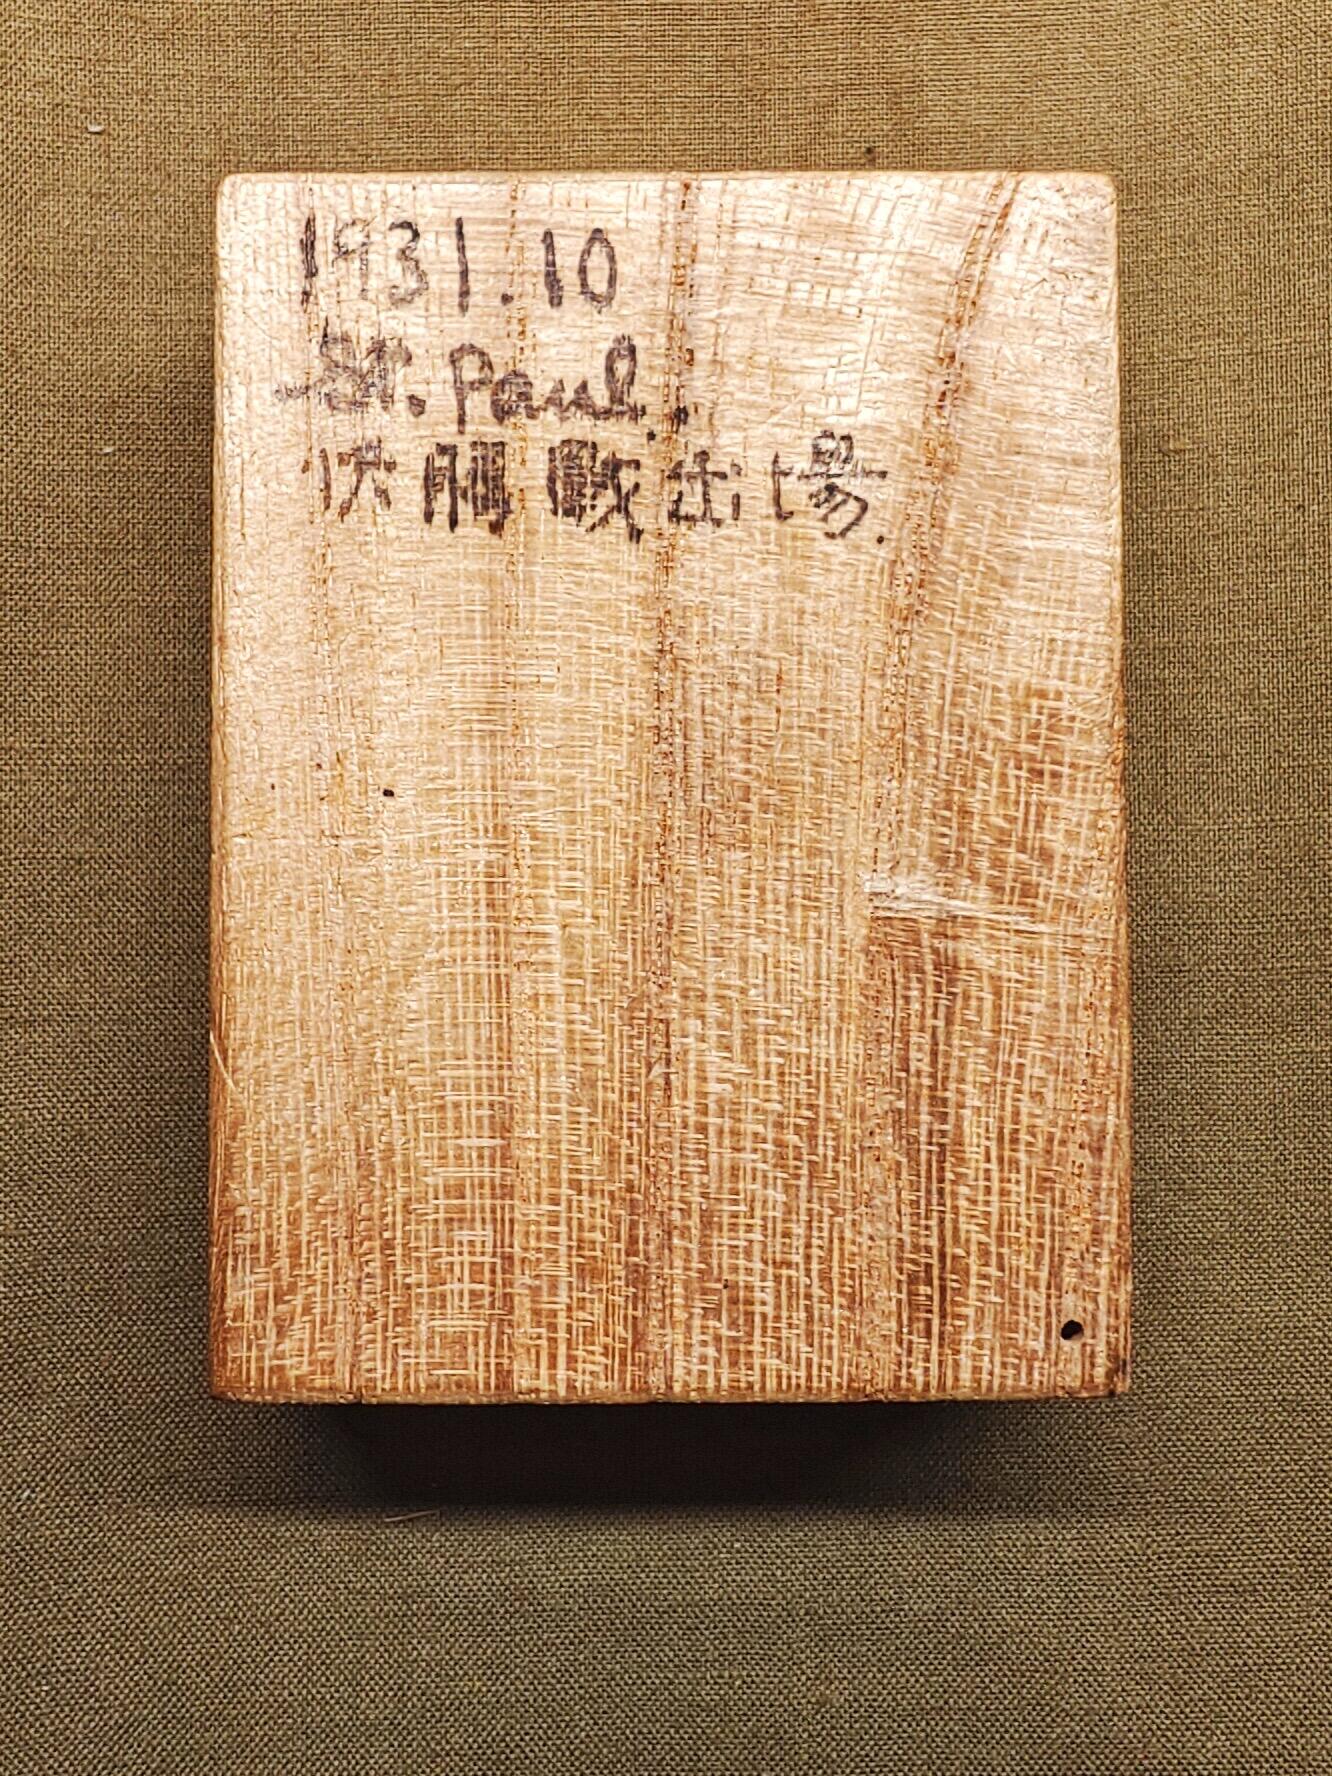 1931.10
St. Paul.
決勝戰出場.